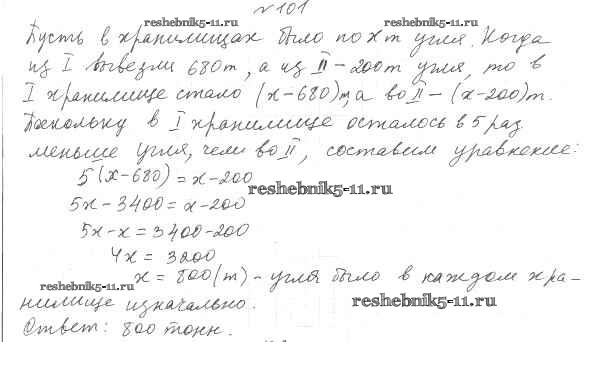 №101
reshebnik5-11.ru reshebnik5-11.ru
Пусть в хранилищах было по x т угля. Когда
из I вывезли 680т, а из II – 200т угля, то в
I хранилище стало (x-680)т, а во II – (x-200)т.
Поскольку в I хранилище осталось в 5 раз
меньше угля, чем во II, составим уравнение:
5(x-680) = x-200
reshebnik5-11.ru
5x-3400 = x-200
5x-x = 3400-200
4x = 3200
x = 800(т) – угля было в каждом хра-
reshebnik5-11.ru
нилище изначально.
reshebnik5-11.ru
Ответ: 800 тонн.